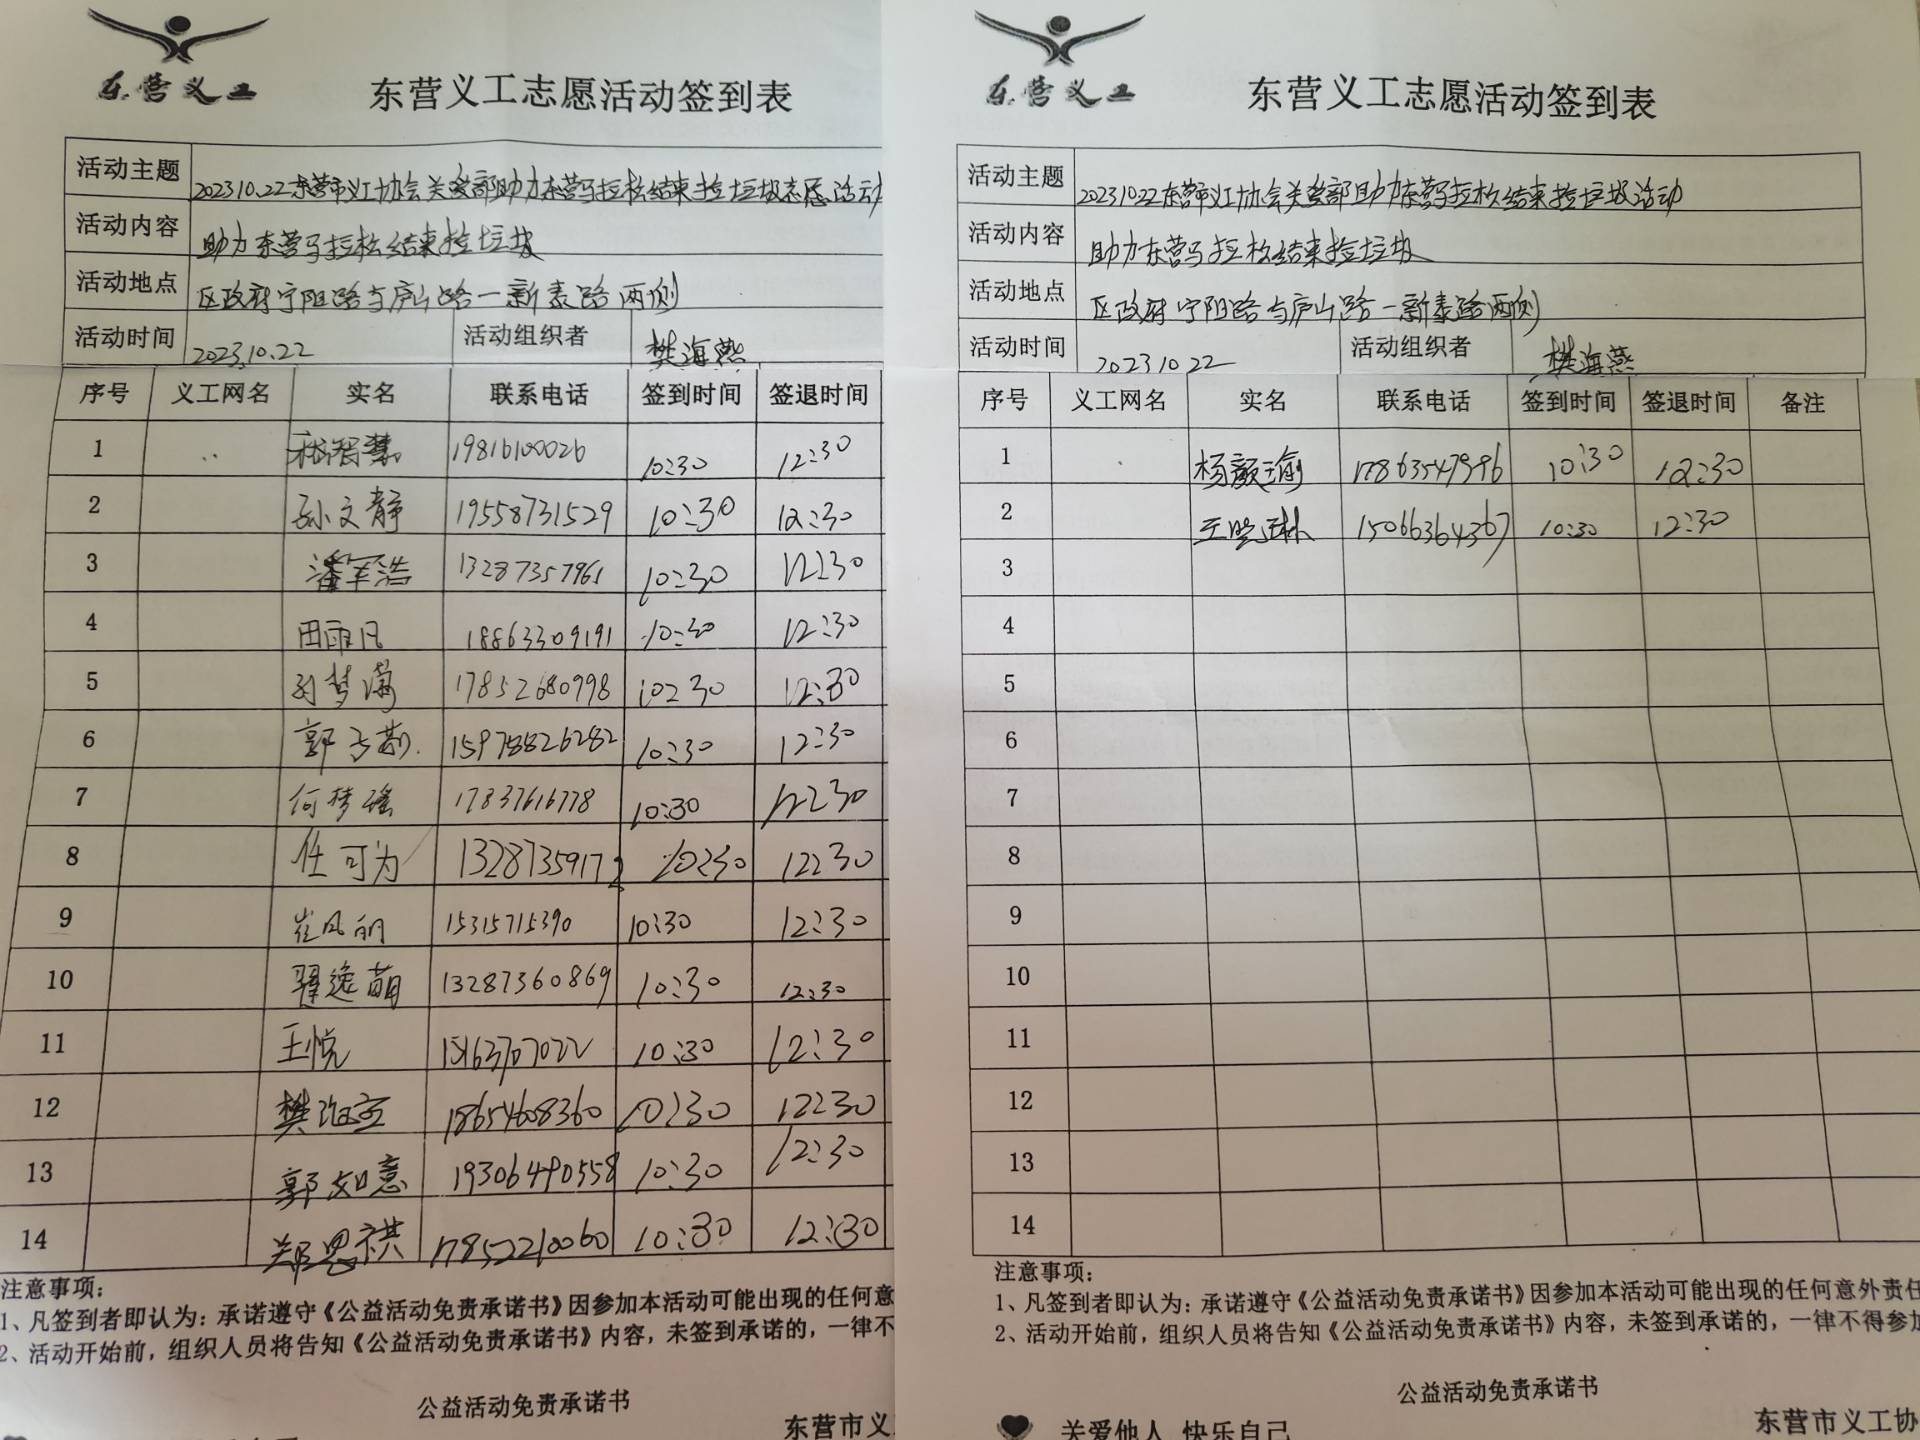 东营义工
东营义工志愿活动签到表
活动主题 2023.10.22东营市义工协会关爱部助力东营马拉松结束捡垃圾志愿活动
活动内容 助力东营马拉松结束捡垃圾
活动地点 区政府宁阳路与庐山路—新泰路两侧
活动时间 2023.10.22 活动组织者 樊海燕
序号 义工网名 实名 联系电话 签到时间 签退时间
1 19816100026 10:30 12:30
2 孙文静 19558731529 10:30 12:30
3 潘军浩 13287357961 10:30 12:30
4 田雨凡 18863309191 10:30 12:30
5 孙梦满 17852680998 10:30 12:30
6 郭子勤 15978826282 10:30 12:30
7 何梦瑶 17837616778 10:30 12:30
8 任可为 13287359172 10:30 12:30
9 崔凤丽 15315715390 10:30 12:30
10 翟逸萌 13287360869 10:30 12:30
11 王悦 15163707022 10:30 12:30
12 樊 18654608360 10:30 12:30
13 郭如意 19306490558 10:30 12:30
14 郑恩祺 17852210060 10:30 12:30
注意事项:
1、凡签到者即认为:承诺遵守《公益活动免责承诺书》因参加本活动可能出现的任何意
2、活动开始前,组织人员将告知《公益活动免责承诺书》内容,未签到承诺的,一律不
公益活动免责承诺书
东营市义
东营义工
东营义工志愿活动签到表
活动主题 2023.10.22东营市义工协会关爱部助力东营马拉松结束捡垃圾活动
活动内容 助力东营马拉松结束捡垃圾
活动地点 区政府宁阳路与庐山路—新泰路两侧
活动时间 2023.10.22 活动组织者 樊海燕
序号 义工网名 实名 联系电话 签到时间 签退时间 备注
1 杨颜瑜 17863547996 10:30 12:30
2 王晓琳 15066364367 10:30 12:30
3
4
5
6
7
8
9
10
11
12
13
14
注意事项:
1、凡签到者即认为:承诺遵守《公益活动免责承诺书》因参加本活动可能出现的任何意外责任
2、活动开始前,组织人员将告知《公益活动免责承诺书》内容,未签到承诺的,一律不得参加
公益活动免责承诺书
关爱他人 快乐自己
东营市义工协